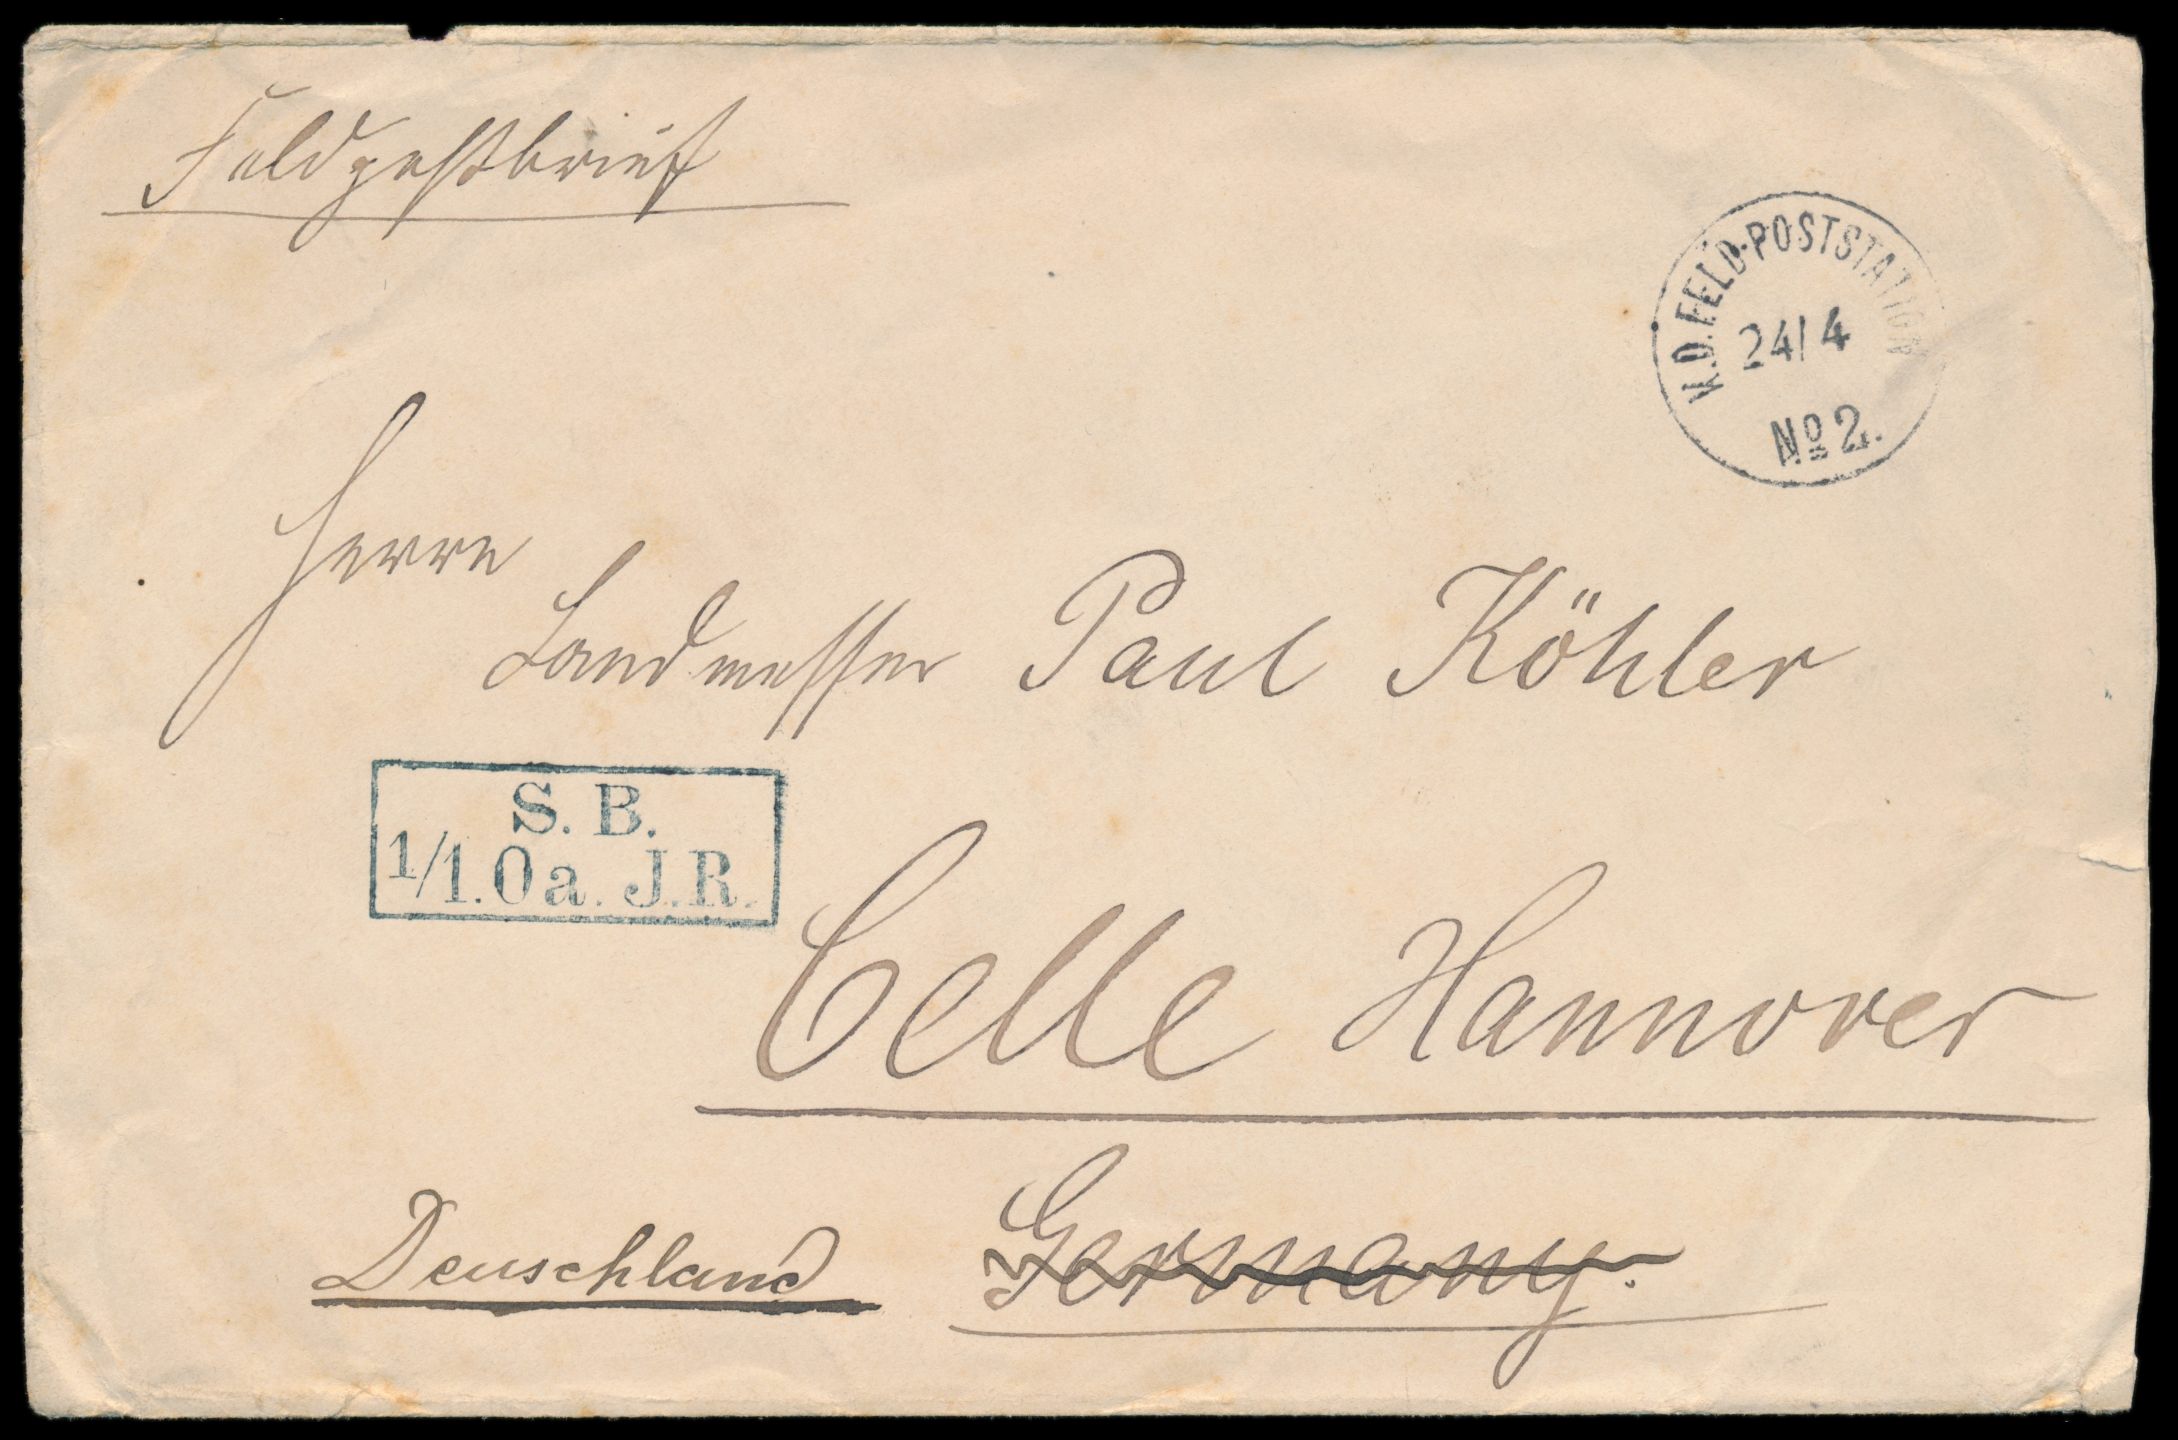 Feldpostbrief
K.D. FELD-POSTSTATION
24/4
No 2.
Herrn
Landmesser Paul Köhler
S. B.
1/1. Oa. J.R.
Celle Hannover
Deuschland Germany.